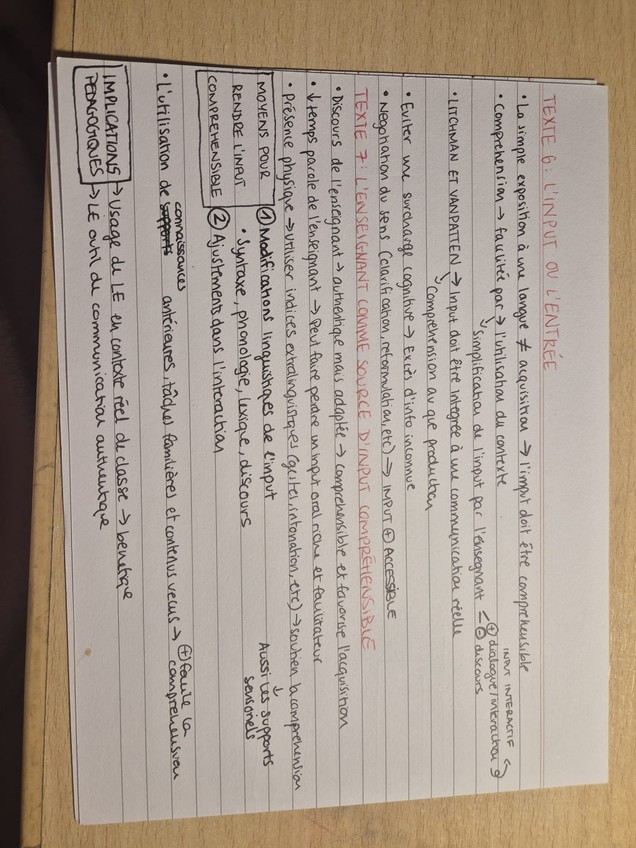 TEXTE 6: L'INPUT OU L'ENTRÉE
• La simple exposition à une langue ≠ acquisition → l'imput doit être comprehensible
• Comprehension → facilités par → l'utilisation du contexte
↳ simplification de l'input par l'enseignant < ⊕ dialogue/interaction
⊖ discours
INPUT INTERACTIF
• LITCHMAN ET VANPATTEN → Input doit être integrée à une communication réelle
↳ Compréhension au que production
• Eviter une surcharge cognitive → Excès d'info inconnue
• Negotiation du sens (clarification, reformulation, etc) → INPUT ⊕ ACCESSIBLE
TEXTE 7: L'ENSEIGNANT COMME SOURCE D'INPUT COMPRÉHENSIBLE
• Discours de l'enseignant → authentique mais adaptée → comprehensible et favorise l'acquisition
• ↓ temps parole de l'enseignant → Peut faire perdre un input oral riche et facilitateur
• Présence physique → utiliser indices extralinguistiques (gestes, intonation, etc) → soutien la comprehension
MOYENS POUR
RENDRE L'INPUT
COMPREHENSIBLE
① Modifications linguistiques de l'input
• Syntaxe, phonologie, lexique, discours
② Ajustements dans l'interaction
↓
Aussi les supports
sensoriels
• L'utilisation de supports connaissances antérieures, tâches familières et contenus vecus → ⊕ facile la
comprehension
IMPLICATIONS
PEDAGOGIQUES
→ Usage de LE en contexte réel de classe → benefique
→ LE outil de communication authentique